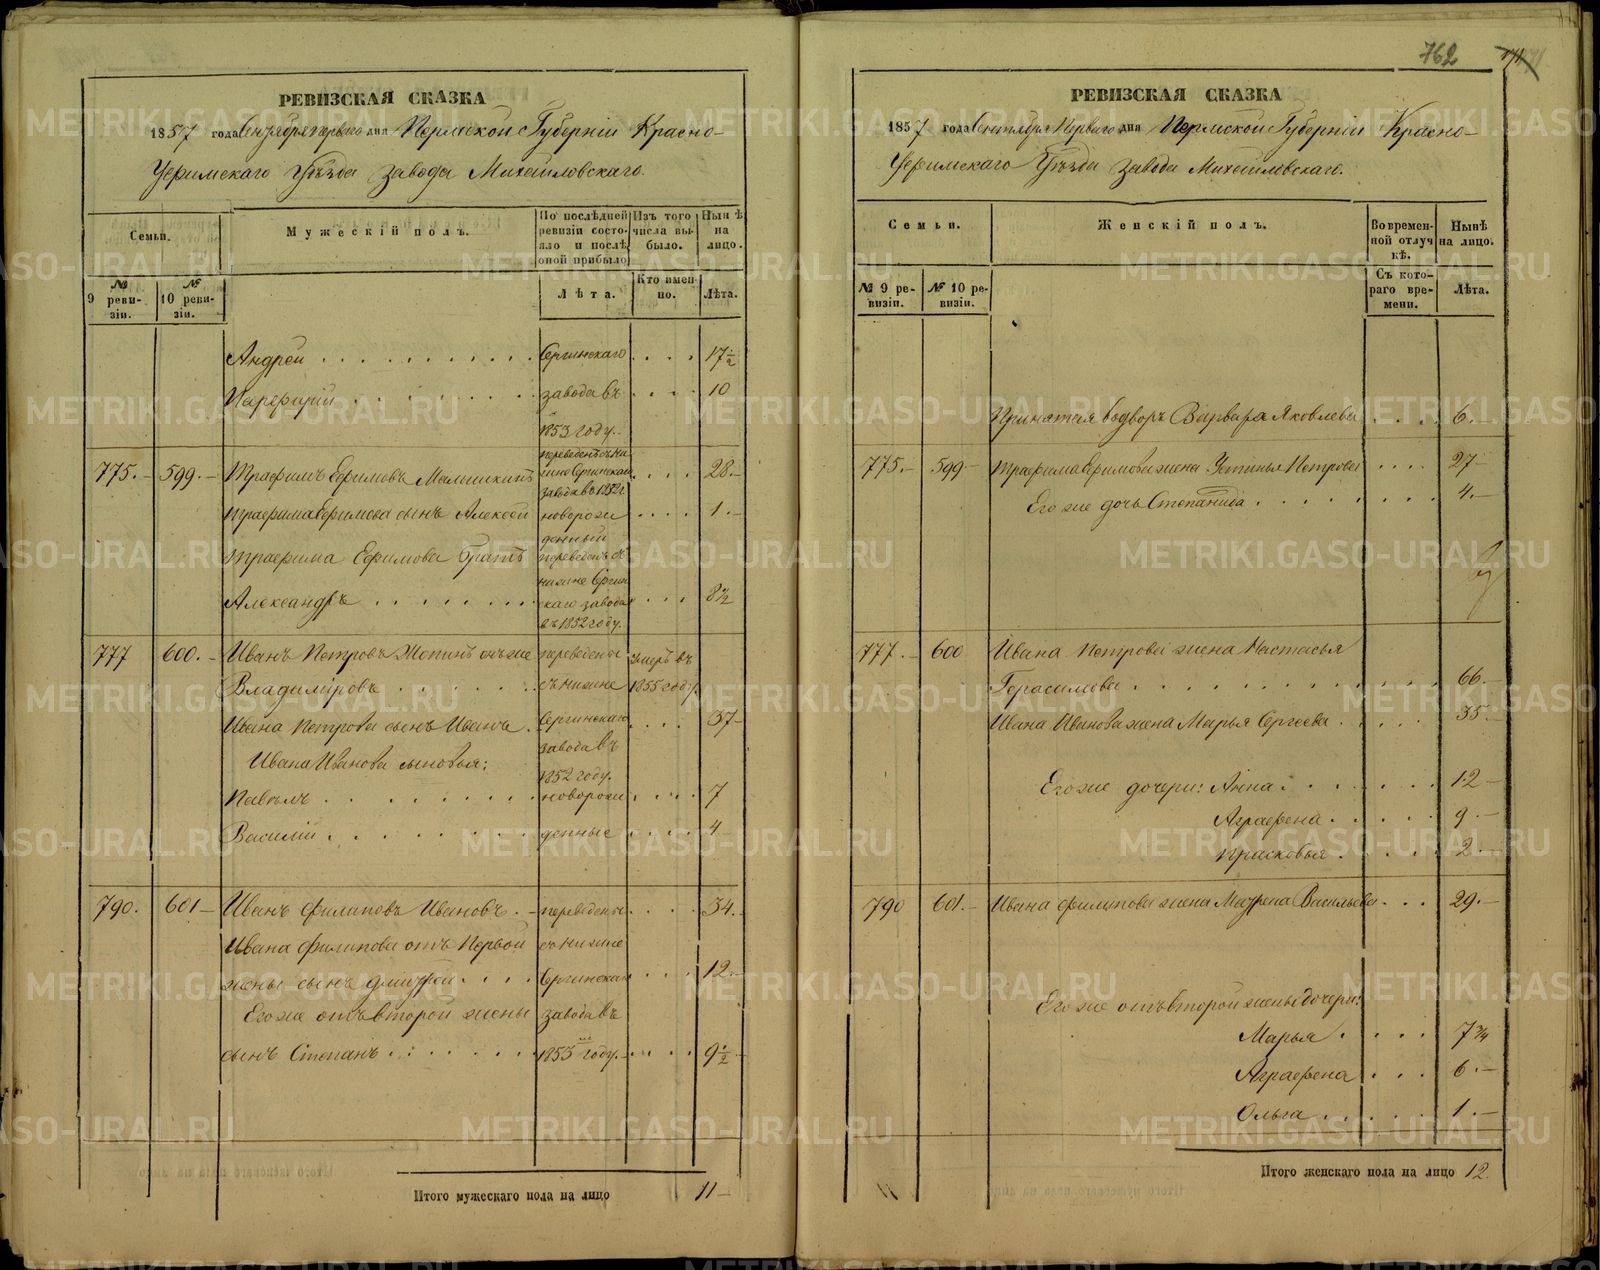 РЕВИЗСКАЯ СКАЗКА
1857 года Сентября Перваго дня Пермской Губернiи Красно-
Уфимскаго Уѣзда завода Михайловскаго.
Семьи.
Мужескiй полъ.
По послѣдней ревизiи состояло и послѣ оной прибыло
Изъ того числа выбыло.
Нынѣ на лицо.
№ 9 ревизiи.
№ 10 ревизiи.
Лѣта.
Кто именно.
Лѣта.
Андрей Сергинскаго 17 1/2
завода въ 10
1853 году.
775. 599. Трафимъ Ефимовъ Малышкинъ переведенъ съ Нижне Сергинскаго завода въ 1852 г. 28
Трафима Ефимова сынъ Алексей новорож 1
денный
Трафима Ефимова братъ переведенъ съ
нижне Сергин
Александръ скаго завода 8 1/2
въ 1852 году.
777 600. Иванъ Петровъ онъ же переведены умеръ въ
Владимiровъ съ нижне 1855 году.
Ивана Петрова сынъ Иванъ Сергинскаго 37
завода въ
Ивана Иванова сыновья: 1852 году.
Павелъ новорож 7
Василiй денные 4
790. 601 Иванъ Филиповъ Ивановъ переведены 34
Ивана Филипова отъ Первой съ нижне
жены сынъ Дмитрей Сергинскаго 12
Его же отъ второй жены завода въ
сынъ Степанъ 1853 году. 9 1/2
Итого мужескаго пола на лицо 11
762
РЕВИЗСКАЯ СКАЗКА
1857 года Сентября Перваго дня Пермской Губернiи Красно-
Уфимскаго Уѣзда завода Михайловскаго.
Семьи.
Женскiй полъ.
Во временной отлучкѣ.
Нынѣ на лицо.
№ 9 ревизiи.
№ 10 ревизiи.
Съ котораго времени.
Лѣта.
Принятая Варвара Яковлева 6.
775. 599 Трафима Ефимова жена Устинья Петрова 27
Его же дочь Степанида 4.
777. 600 Ивана Петрова жена Настасья
Герасимова 66.
Ивана Иванова жена Марья Сергеева 35
Его же дочери: Анна 12
Аграфена 9.
Прасковья 2.
790 601. Ивана Филипова жена Маврена Васильева 29.
Его же отъ второй жены дочери:
Марья 7 3/4
Аграфена 6.
Ольга 1.
Итого женскаго пола на лицо 12.
METRIKI.GASO-URAL.RU